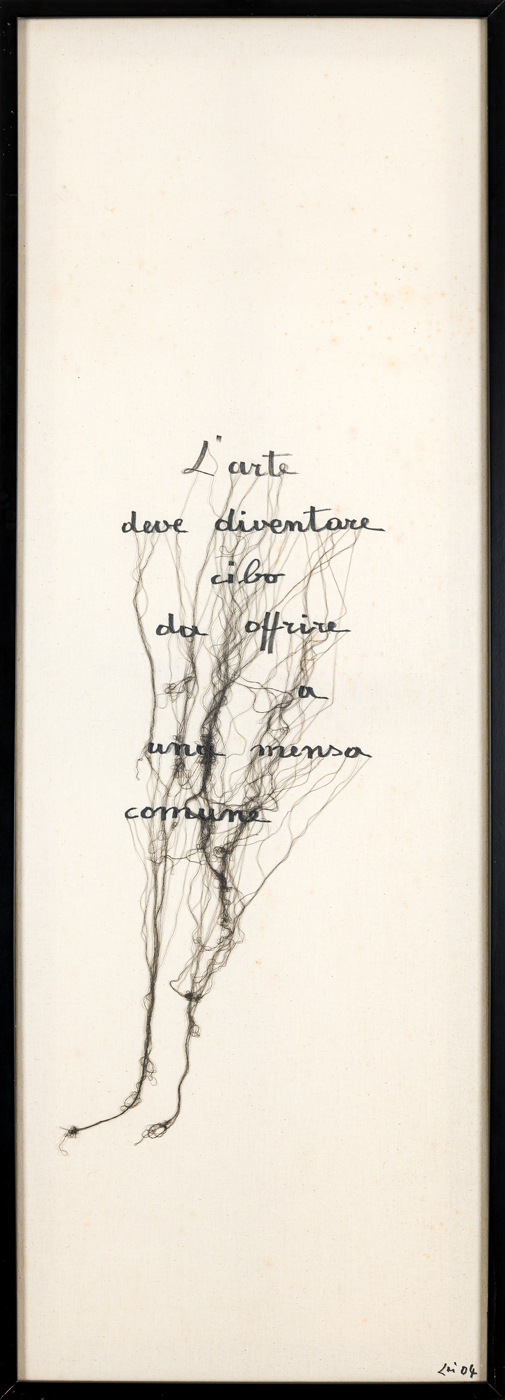 L'arte
deve diventare
cibo
da offrire
a
una mensa
comune
Lai 04